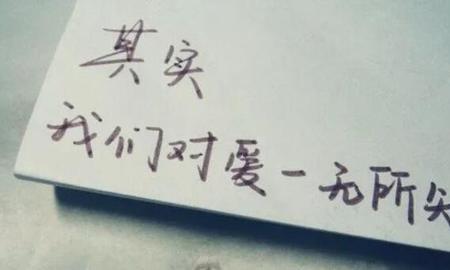 其实
我们对爱一无所